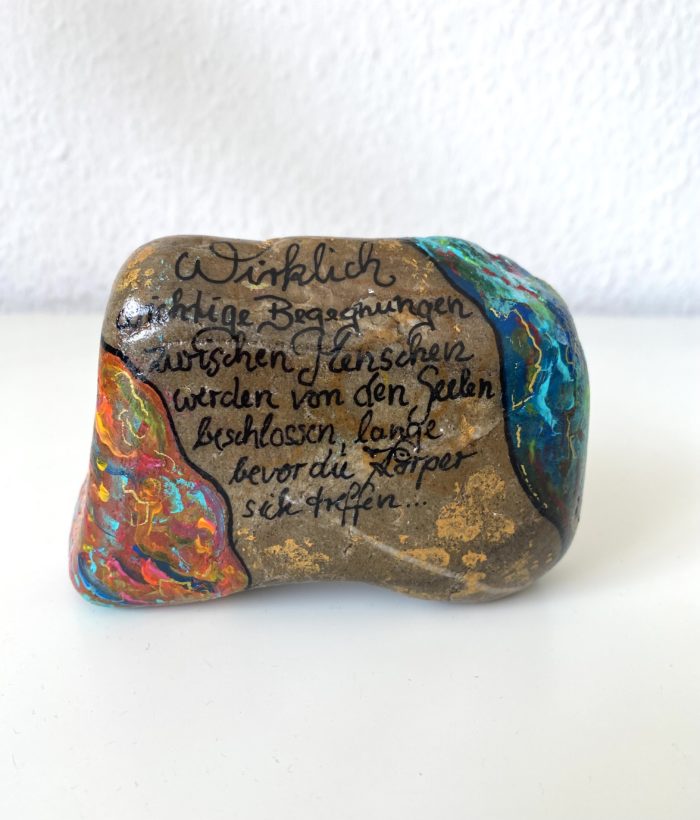 Wirklich
wichtige Begegnungen
zwischen Menschen
werden von den Seelen
beschlossen, lange
bevor die Körper
sich treffen...